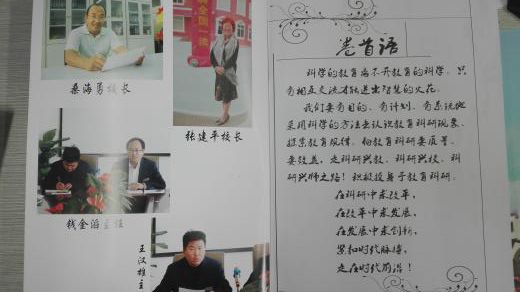 全国一流
桑海勇校长
张建平校长
钱金滔主任
王汉雄主
卷首语
科学的教育离不开教育的科学。只
有相互交流才能迸出智慧的火花。
我们要有目的、有计划、有系统地
采用科学的方法去认识教育科研现象、
探索教育规律。向教育科研要质量、
要效益。走科研兴教、科研兴校、科
研兴师之路！积极投身于教育科研。
在科研中求改革，
在改革中求发展，
在发展中求创新，
紧扣时代脉搏，
走在时代前沿！